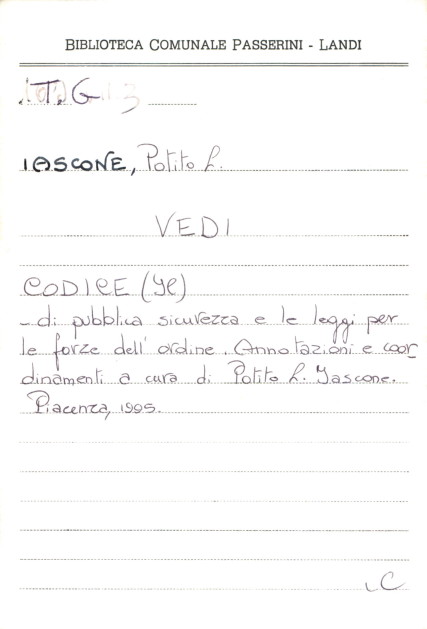 BIBLIOTECA COMUNALE PASSERINI - LANDI
T.G
IASCONE, Potito L.
VEDI
CODICE (Il)
- di pubblica sicurezza e le leggi per
le forze dell'ordine. Annotazioni e coor
dinamenti a cura di Potito L. Iascone.
Piacenza, 1995.